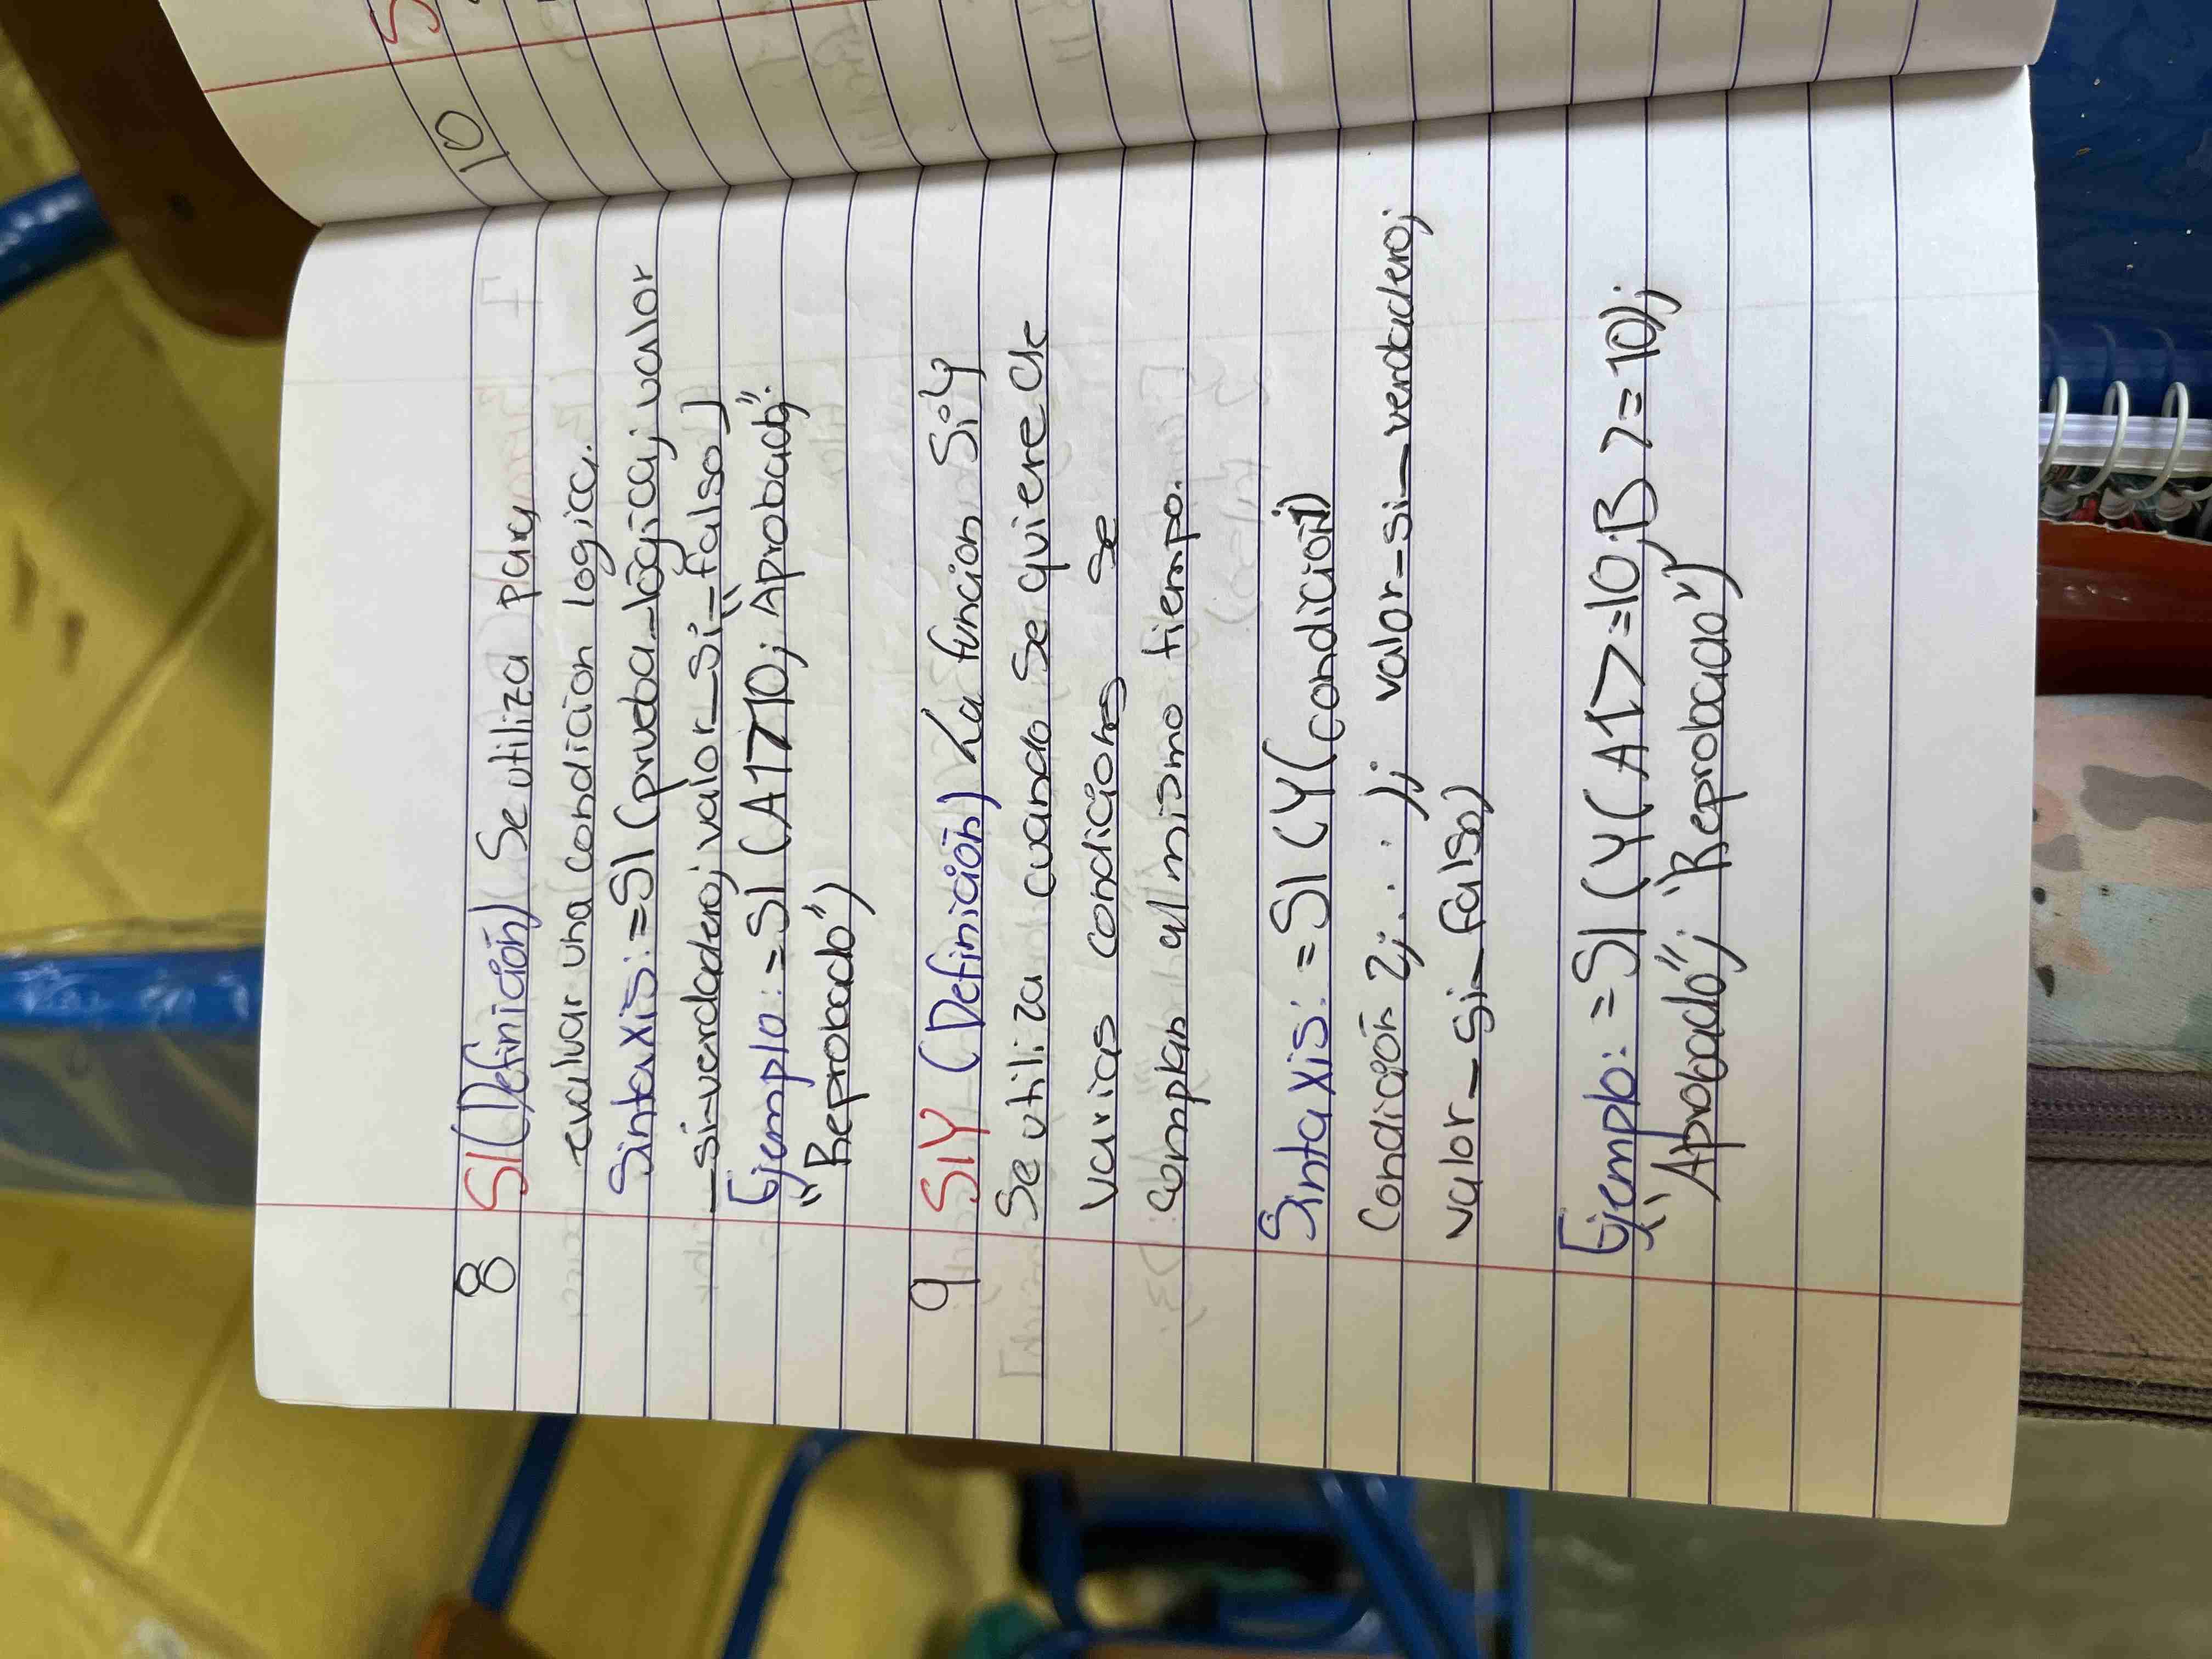 8 SI (Definición) Se utiliza para
evaluar una condicion logica.
Sintaxis: =SI (prueba_lógica; valor
_si_verdadero; valor_si_falso)
Ejemplo: =SI (A1>10; "Aprobado";
"Reprobado")
9 SIY (Definición) La funcion Si Y
Se utiliza cuando se quiere de
varias condiciones se
complan al mismo tiempo.
Sintaxis: =SI (Y(condición1)
Condición 2;...); valor_si_verdadero;
valor_si_falso)
Ejemplo: =SI (Y(A1>=10;B>=10);
"Aprobado"; "Reprobado")
10